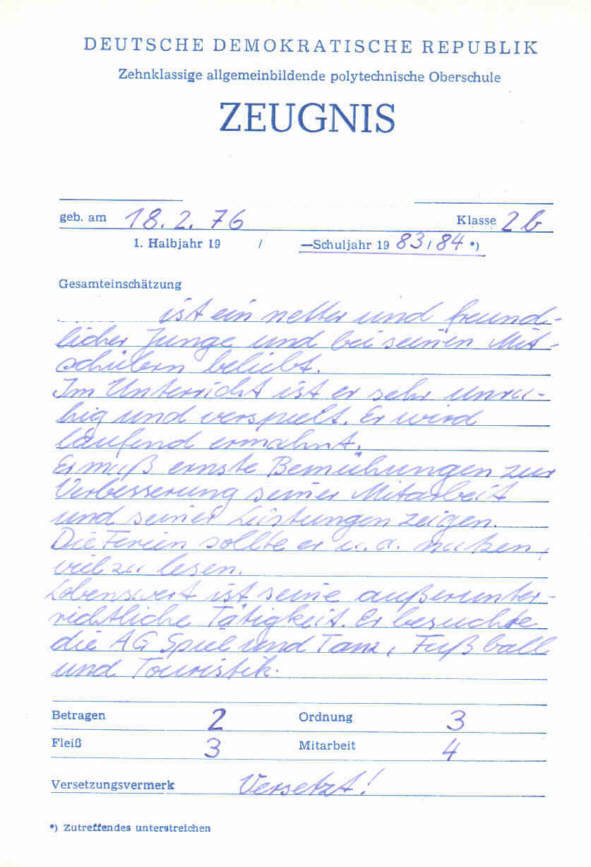 DEUTSCHE DEMOKRATISCHE REPUBLIK
Zehnklassige allgemeinbildende polytechnische Oberschule
ZEUGNIS
geb. am 18.2.76 Klasse 2b
1. Halbjahr 19 / —Schuljahr 19 83/84 *)
Gesamteinschätzung
ist ein netter und freund-
licher Junge und bei seinen Mit-
schülern beliebt.
Im Unterricht ist er sehr unru-
hig und verspielt. Er wird
laufend ermahnt.
Er muß ernste Bemühungen zur
Verbesserung seiner Mitarbeit
und seiner Leistungen zeigen.
Die Ferien sollte er u. a. nutzen,
viel zu lesen.
Lobenswert ist seine außerunter-
richtliche Tätigkeit. Er besuchte
die AG Spiel und Tanz, Fußball
und Touristik.
Betragen 2 Ordnung 3
Fleiß 3 Mitarbeit 4
Versetzungsvermerk Versetzt!
*) Zutreffendes unterstreichen